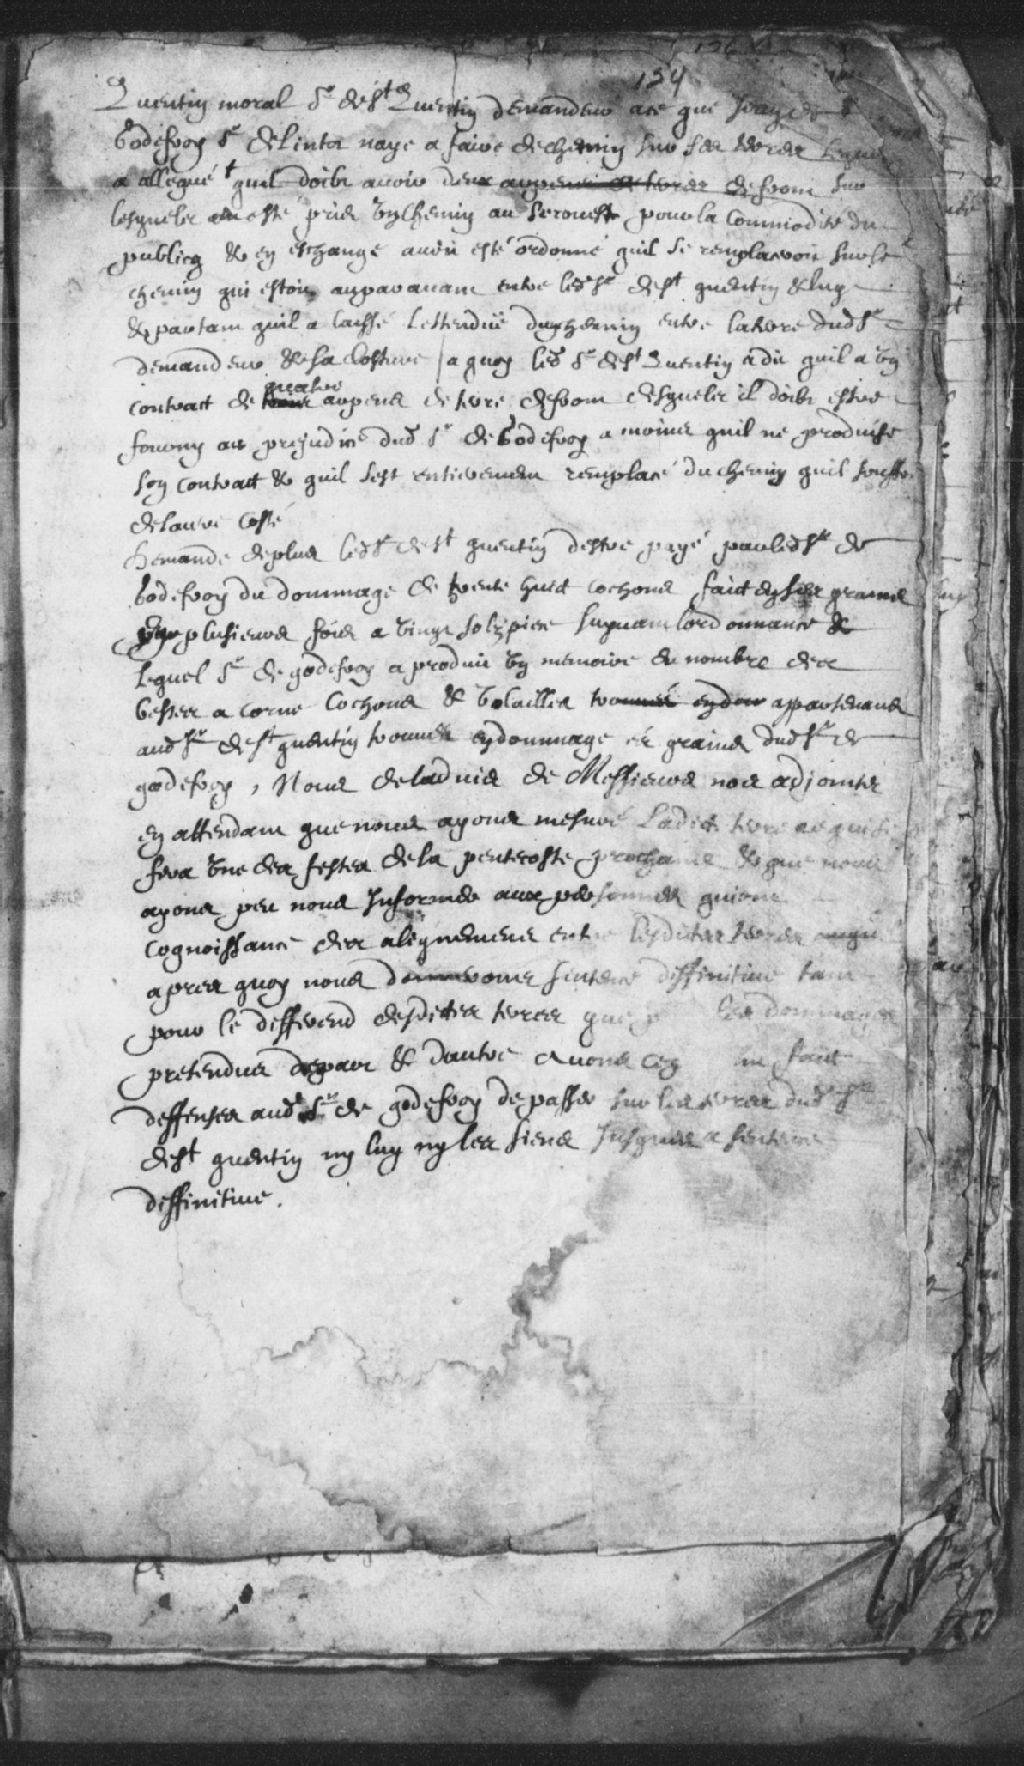 134
Quentin moral Sr de St Quentin demandeur ace que Jean de
Godefroy Sr de Linto naye a faire de chemin sur ses terres lequel
a allegué quil doibt avoir deux arpens de terres de front sur
lesquelz on a esté pris un chemin au sorouest pour la commodité du
publicq & en eschange avoit esté ordonné quil se remplaceroit sur le
chemin qui estoit auparavant entre led Sr de St quentin & luy
& partant quil a laissé lettendue du chemin entre la terre dud Sr
demandeur & sa closture / a quoy led Sr de St Quentin a dit quil a un
contract de quatre arpens de terre de front desquelz il doibt estre
fourny au prejudice dud Sr de Godefroy a moins quil ne produise
son contract & quil sest entierement remplacé du chemin quil souffre
de lautre costé
Demande de plus led Sr de St quentin destre payé par led Sr de
Godefroy du dommage de trente huict cochons faict en ses grains
plusieurs fois a vingt solz piece suyvant lordonnance &
lequel Sr de godefroy a produit un memoire du nombre des
bestes a corne cochons & volailles trouvés en dom appartenans
aud Sr de St quentin trouvés en dommage és grains dud Sr de
godefroy, Nous de ladvis de Messieurs nos adjoints
en attendant que nous ayons mesuré Ladite terre ce qui se
fera une des festes de la pentecoste prochaine & que nous
ayons peu nous Informer aux personnes qui ont
cognoissance des alignemens entre lesdites terres
apres quoy nous donnerons sentence diffinitive tant
pour le differend desdites terres que p les dommages
pretendus de part & dautre Avons ce faict
deffenses aud Sr de godefroy de passer sur les terres dud Sr
de St quentin ny luy ny les siens Jusques a sentence
diffinitive.